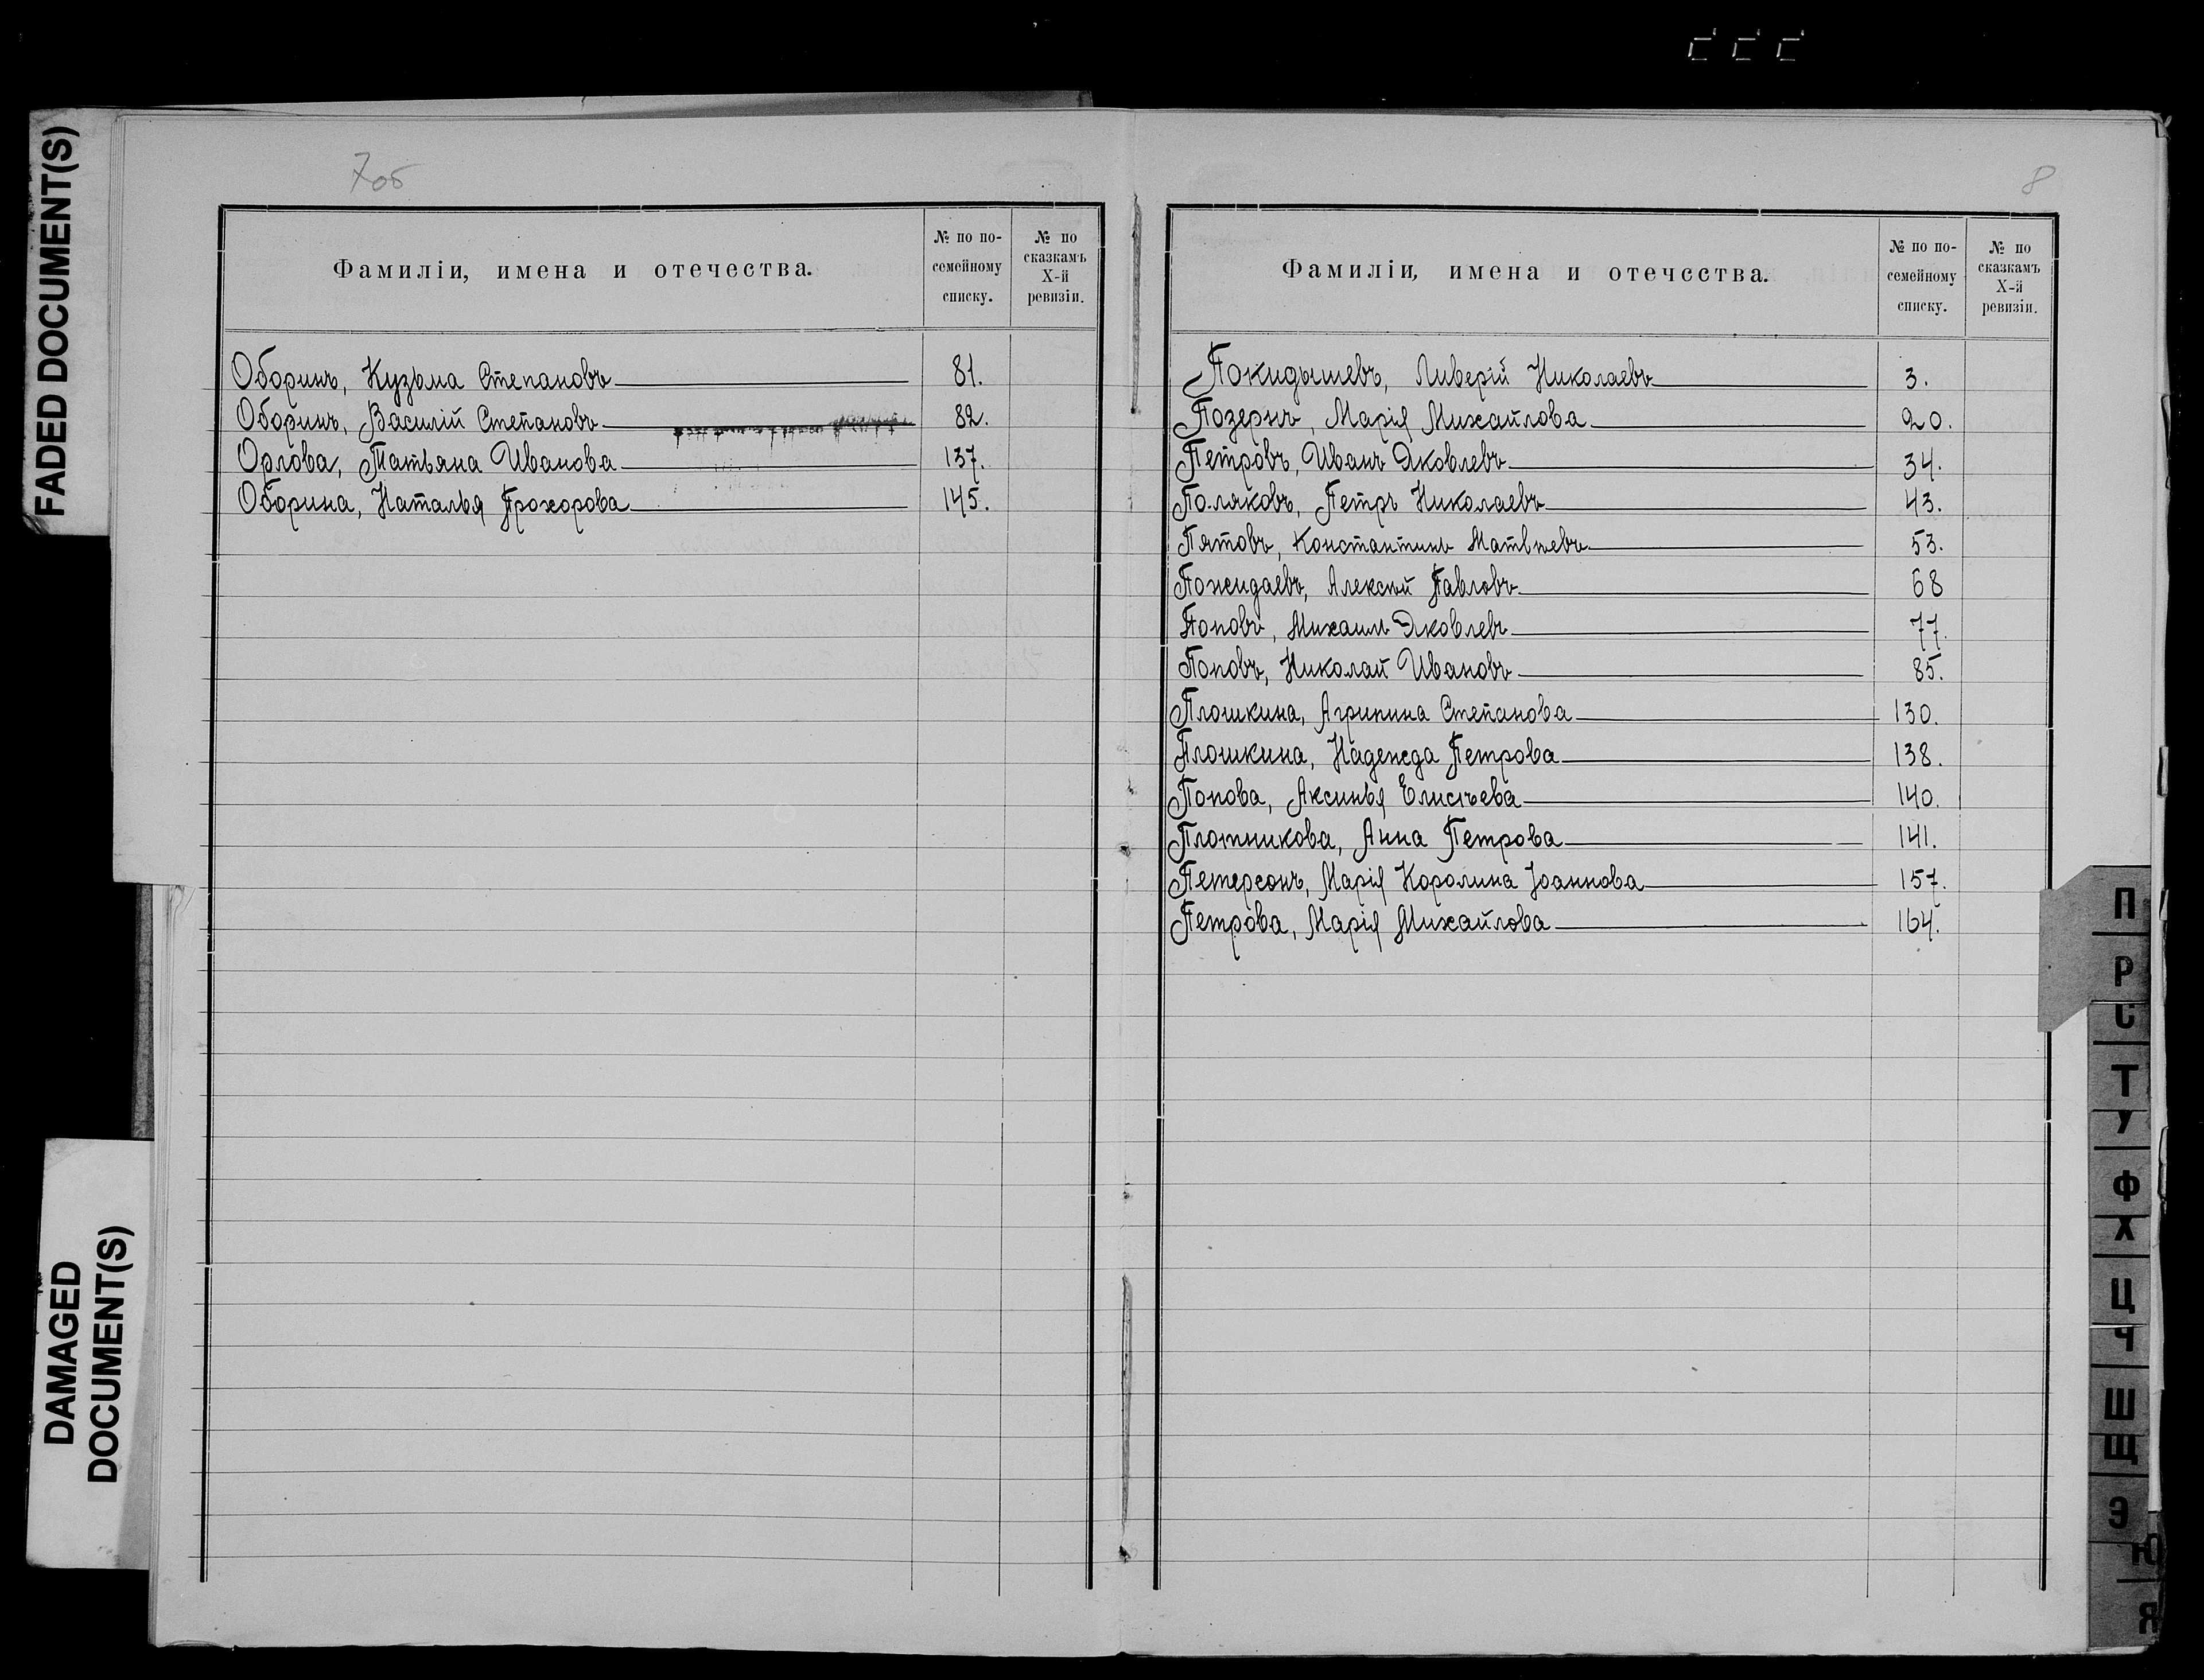 FADED DOCUMENT(S)
DAMAGED
DOCUMENT(S)
7об
Фамиліи, имена и отечества.
№ по по-
семейному
списку.
№ по
сказкамъ
X-й
ревизіи.
Оборинъ, Кузьма Степановъ 81.
Оборинъ, Василій Степановъ 82.
Орлова, Татьяна Иванова 137.
Оборина, Наталья Прохорова 145.
8
Фамиліи, имена и отечества.
№ по по-
семейному
списку.
№ по
сказкамъ
X-й
ревизіи.
Покидышевъ, Ливерій Николаевъ 3.
Позернъ, Марія Михайлова 20.
Петровъ, Иванъ Яковлевъ 34.
Поляковъ, Петръ Николаевъ 43.
Пятовъ, Константинъ Матвѣевъ 53.
Пожидаевъ, Алексѣй Павловъ 68
Поповъ, Михаилъ Яковлевъ 77.
Поповъ, Николай Ивановъ 85.
Плошкина, Агрипина Степанова 130.
Плошкина, Надежда Петрова 138.
Попова, Аксинья Елисѣева 140.
Плотникова, Анна Петрова 141.
Петерсонъ, Марія Королина Іоаннова 157.
Петрова, Марія Михайлова 164.
П
Р
С
Т
У
Ф
Х
Ц
Ч
Ш
Щ
Э
Ю
Я